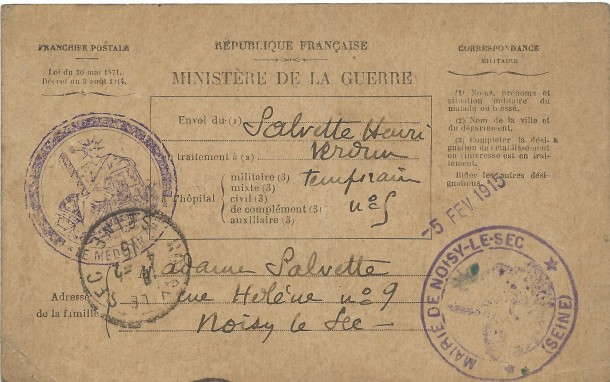 FRANCHISE POSTALE
Loi du 30 mai 1871.
Décret du 3 août 1914.
RÉPUBLIQUE FRANÇAISE
MINISTÈRE DE LA GUERRE
CORRESPONDANCE
MILITAIRE
(1) Nom, prénoms et
situation militaire du
malade ou blessé.
(2) Nom de la ville et
du département.
(3) Compléter la dési-
gnation de l'établissement
où l'intéressé est en trai-
tement.
Biffer les autres dési-
gnations.
Envoi du (1) Salvette Henri
en traitement à (2) Verdun
l'hôpital
militaire (3) temporaire
mixte (3)
civil (3) n° 5
de complément (3)
auxiliaire (3)
-5 FEV 1915
MAIRIE DE NOISY-LE-SEC
(SEINE)
NOISY LE SEC
SEINE
4-2
15
Adresse
de la famille
Madame Salvette
rue Hélène n° 9
Noisy le Sec